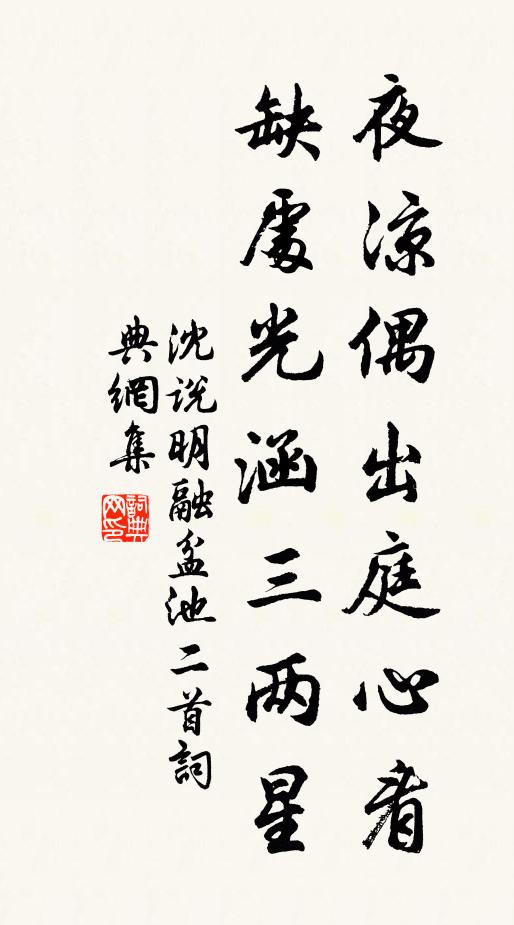 夜涼偶出庭心看
缺處光涵三两星
沈説明融盆池二首詞
典網集
詞典
网印